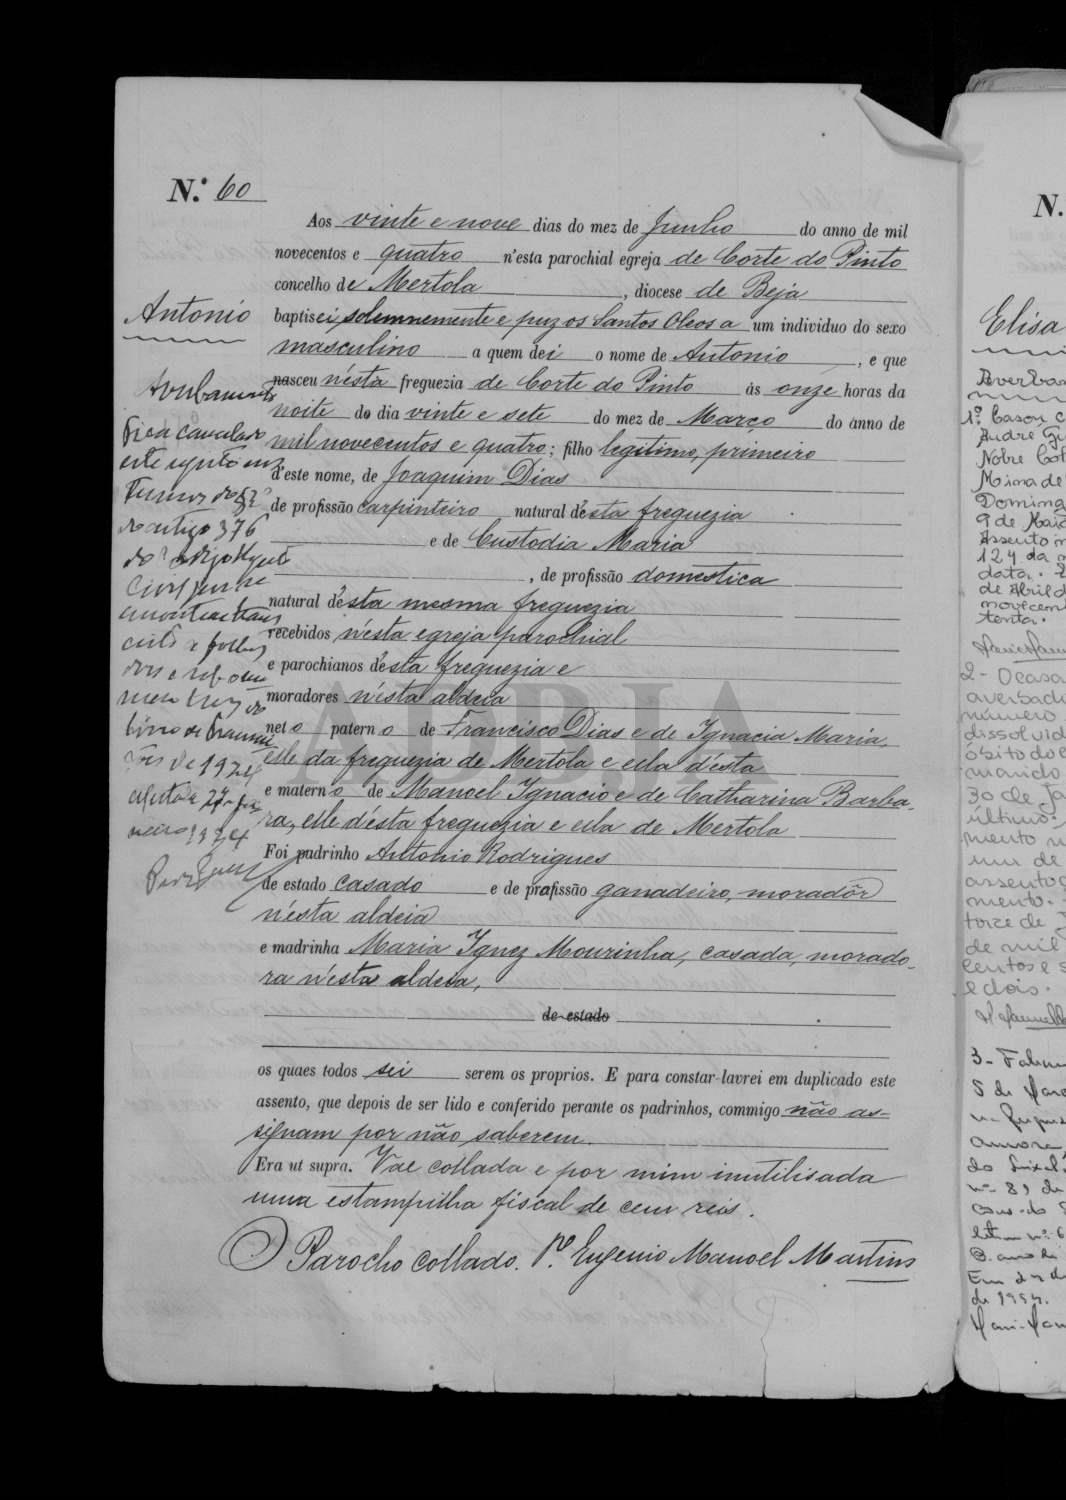 N.º 60
Aos vinte e nove dias do mez de Junho do anno de mil
novecentos e quatro n'esta parochial egreja de Corte do Pinto
concelho de Mertola, diocese de Beja
baptisei solemnemente e puz os Santos Oleos a um individuo do sexo
masculino a quem dei o nome de Antonio, e que
nasceu n'ésta freguezia de Corte do Pinto ás onze horas da
noite do dia vinte e sete do mez de Março do anno de
mil novecentos e quatro; filho legitimo, primeiro
d'este nome, de Joaquim Dias
de profissão carpinteiro natural d'ésta freguezia
e de Custodia Maria
, de profissão domestica
natural d'ésta mesma freguezia
recebidos n'ésta egreja parochial
e parochianos d'ésta freguezia e
moradores n'ésta aldeia
neto paterno de Francisco Dias e de Ignacia Maria,
elle da freguezia de Mertola e ella d'ésta
e materno de Manoel Ignacio e de Catharina Barba-
ra, elle d'ésta freguezia e ella de Mertola
Foi padrinho Antonio Rodrigues
de estado casado e de profissão ganadeiro, moradôr
n'ésta aldeia
e madrinha Maria Ignez Mourinha, casada, morado-
ra n'ésta aldeia,
de estado
os quaes todos sei serem os proprios. E para constar lavrei em duplicado este
assento, que depois de ser lido e conferido perante os padrinhos, commigo não as-
signam por não saberem.
Era ut supra. Vae collada e por mim inutilisada
uma estampilha fiscal de cem reis.
O Parocho collado. P.e Eugenio Manoel Martins
Antonio
Averbamento
Fica cancelado
este
do artigo 376
do codigo
Civil
livro de
de 1924
1924
ADBJA
N.
Elisa
1º Casou c
André
Nobre
Mina de
Doming
9 de Maio
Assento n
124 da
data.
de Abril d
novecen
tenta.
2- O casa
averbado
número
dissolvid
óbito do
marido
30 de Ja
último.
mento n
um de
assento
mento.
torze de
de mil
centos e s
e dois.
3- Falec
5 de Març
de 1994.